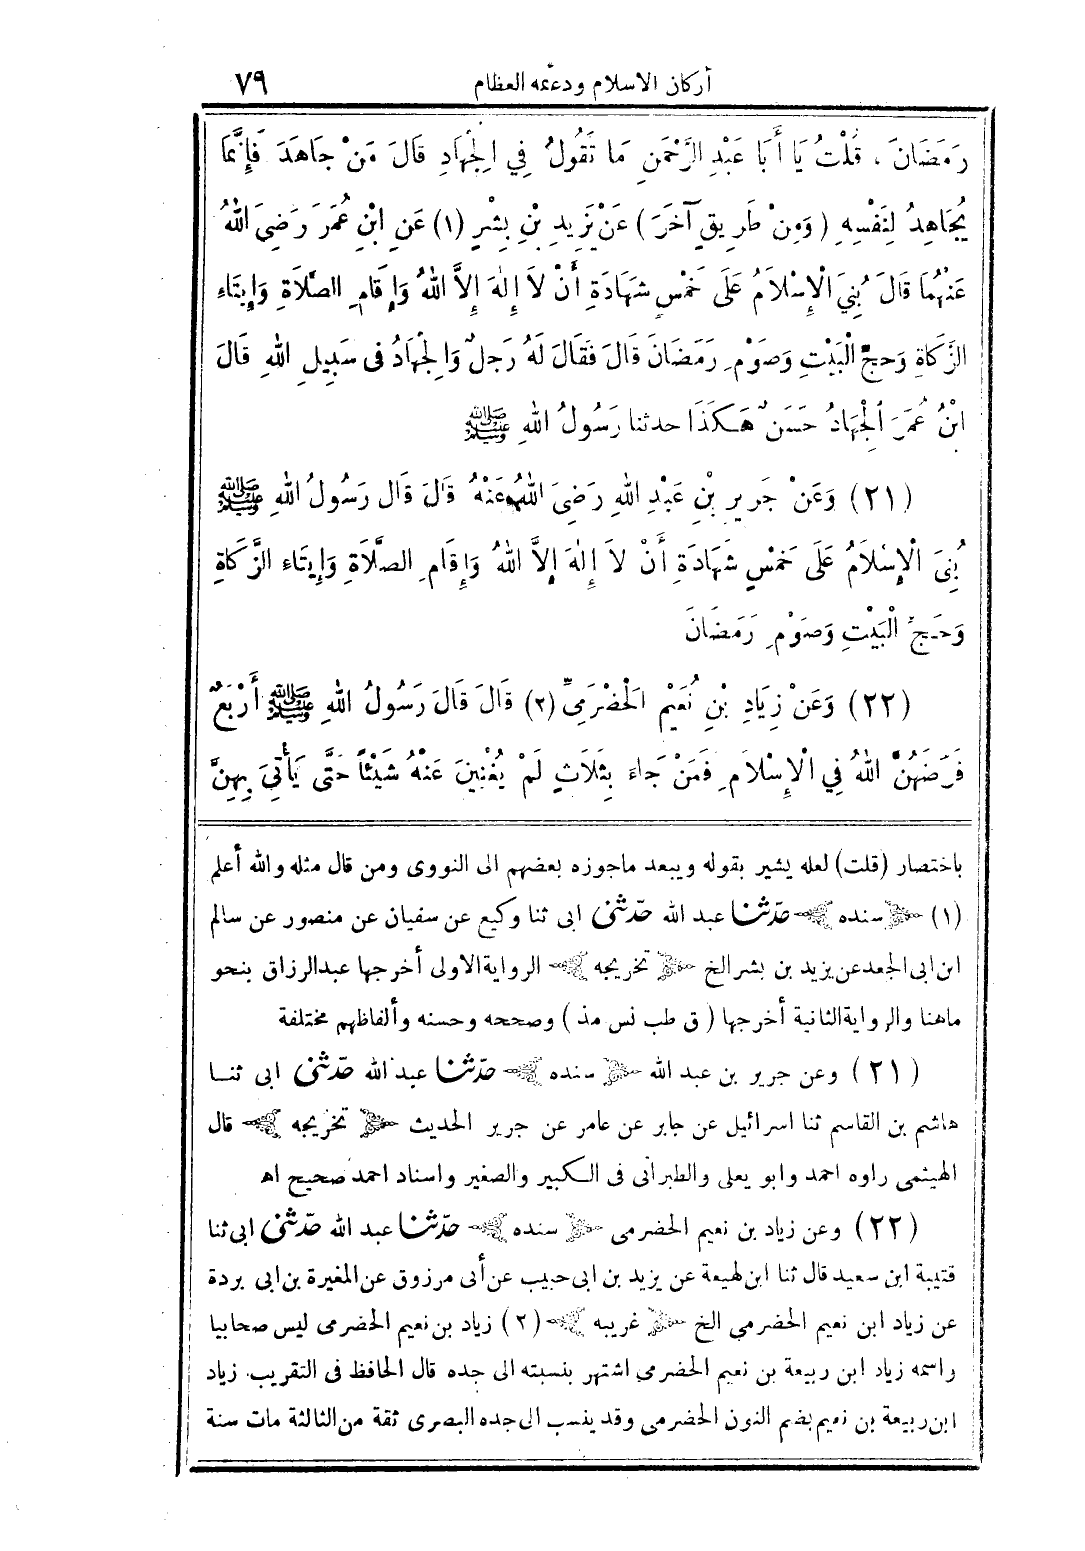 أركان الاسلام ودعمه العظام ٧٩
رَمَضَانَ ، قُلْتُ يَا أَبَا عَبْدِ الرَّحْمَنِ مَا تَقُولُ فِي الْجِهَادِ قَالَ مَنْ جَاهَدَ فَإِنَّمَا
يُجَاهِدُ لِنَفْسِهِ ( وَمِنْ طَرِيقٍ آخَرَ ) عَنْ يَزِيدِ بْنِ بِشْرٍ (١) عَنِ ابْنِ عُمَرَ رَضِىَ اللهُ
عَنْهُمَا قَالَ بُنِيَ الْإِسْلَامُ عَلَى خَمْسٍ شَهَادَةِ أَنْ لَا إِلَهَ إِلاَّ اللهُ وَإِقَامِ الصَّلَاةِ وَإِيتَاءِ
الزَّكَاةِ وَحَجِّ الْبَيْتِ وَصَوْمِ رَمَضَانَ قَالَ فَقَالَ لَهُ رَجُلٌ وَالْجِهَادُ فى سَبِيلِ اللهِ قَالَ
ابْنُ عُمَرَ الْجِهَادُ حَسَنٌ هَكَذَا حدثنا رَسُولُ اللهِ ﷺ
(٢١) وَعَنْ جَرِيرِ بْنِ عَبْدِ اللهِ رَضِىَ اللهُ عَنْهُ قَالَ قَالَ رَسُولُ اللهِ ﷺ
بُنِىَ الْإِسْلَامُ عَلَى خَمْسٍ شَهَادَةِ أَنْ لاَ إِلَهَ إِلاَّ اللهُ وَإِقَامِ الصَّلَاةِ وَإِيتَاءِ الزَّكَاةِ
وَحَجِّ الْبَيْتِ وَصَوْمِ رَمَضَانَ
(٢٢) وَعَنْ زِيَادِ بْنِ نُعَيْمٍ الْحَضْرَمِىِّ (٢) قَالَ قَالَ رَسُولُ اللهِ ﷺ أَرْبَعٌ
فَرَضَهُنَّ اللهُ فِي الْإِسْلَامِ فَمَنْ جَاءَ بِثَلَاثٍ لَمْ يُغْنِينَ عَنْهُ شَيْئًا حَتَّى يَأْتِيَ بِهِنَّ
باختصار (قلت) لعله يشير بقوله ويبعد ماجوزه بعضهم الى النووى ومن قال مثله والله أعلم
(١) ﴿ سنده ﴾ حدّثنا عبد الله حدّثنى ابى ثنا وكيع عن سفيان عن منصور عن سالم
ابن ابى الجعد عن يزيد بن بشر الخ ﴿ تخريجه ﴾ الرواية الاولى أخرجها عبدالرزاق بنحو
ماهنا والرواية الثانية أخرجها ( ق طب نس مذ ) وصححه وحسنه وألفاظهم مختلفة
(٢١) وعن جرير بن عبد الله ﴿ سنده ﴾ حدّثنا عبد الله حدّثنى ابى ثنا
هاشم بن القاسم ثنا اسرائيل عن جابر عن عامر عن جرير الحديث ﴿ تخريجه ﴾ قال
الهيثمى رواه احمد وابو يعلى والطبرانى فى الكبير والصغير واسناد احمد صحيح اهـ
(٢٢) وعن زياد بن نعيم الحضرمى ﴿ سنده ﴾ حدّثنا عبد الله حدّثنى ابى ثنا
قتيبة ابن سعيد قال ثنا ابن لهيعة عن يزيد بن ابى حبيب عن أبى مرزوق عن المغيرة بن ابى بردة
عن زياد ابن نعيم الحضرمى الخ ﴿ غريبه ﴾ (٢) زياد بن نعيم الحضرمى ليس صحابيا
واسمه زياد ابن ربيعة بن نعيم الحضرمى اشتهر بنسبته الى جده قال الحافظ فى التقريب. زياد
ابن ربيعة بن نعيم بضم النون الحضرمى وقد ينسب الى جده البصرى ثقة من الثالثة مات سنة